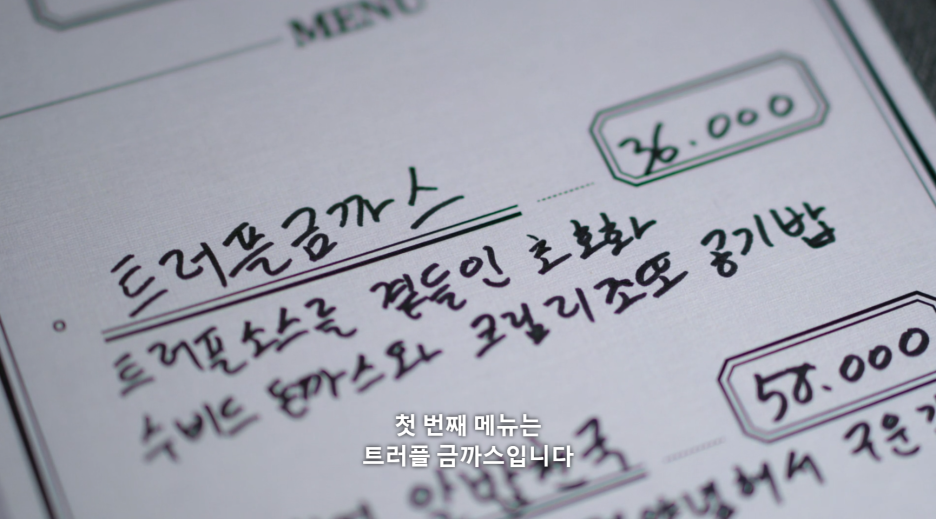 MENU
트러플금까스 36.000
트러플소스를 곁들인 초호화
수비드 돈까스와 크림리조또 공기밥
58.000
구운
첫 번째 메뉴는
트러플 금까스입니다